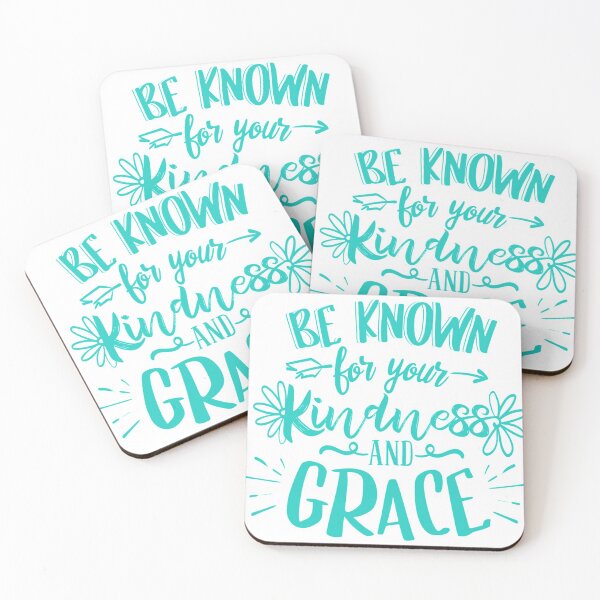 BE KNOWN
for your
Kindness
BE KNOWN
for your
Kindness
AND
GRACE
BE KNOWN
for your
Kindness
AND
GRAC
BE KNOWN
for your
Kindness
AND
GRACE